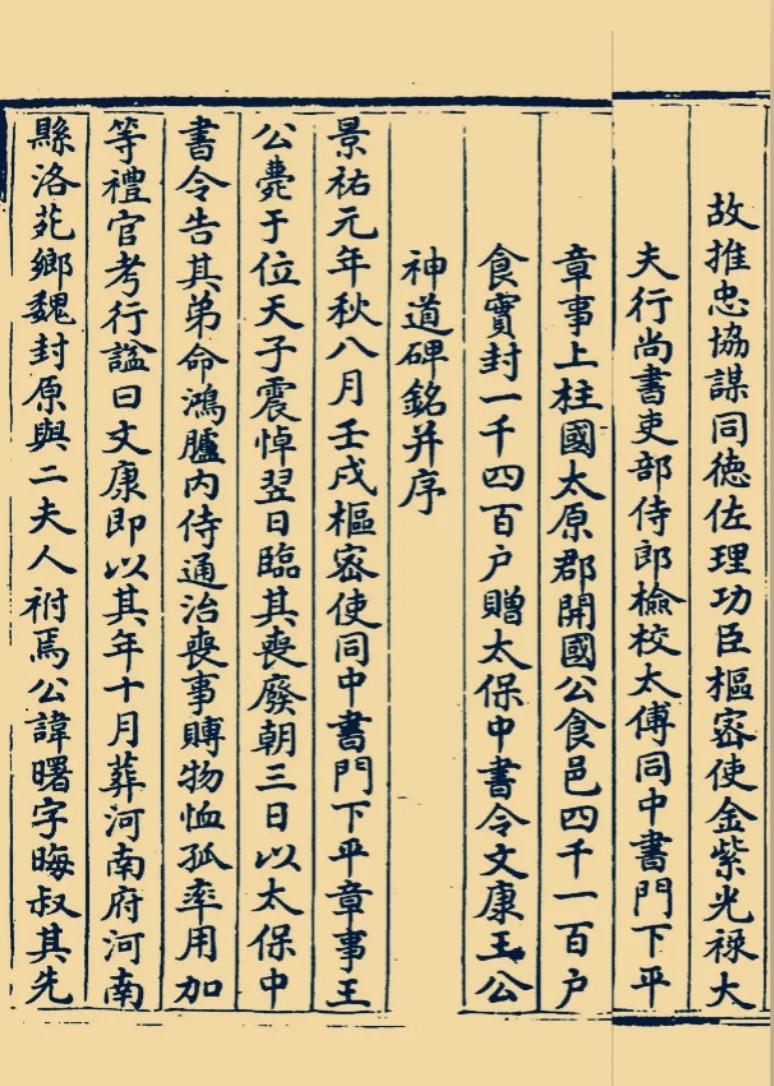 故推忠協謀同徳佐理功臣樞宻使金紫光祿大
夫行尚書吏部侍郎檢校太傅同中書門下平
章事上柱國太原郡開國公食邑四千一百户
食實封一千四百户贈太保中書令文康王公
神道碑銘并序
景祐元年秋八月壬戌樞宻使同中書門下平章事王
公薨于位天子震悼翌日臨其喪廢朝三日以太保中
書令告其弟命鴻臚内侍通治喪事賻物恤孤率用加
等禮官考行謚曰文康即以其年十月葬河南府河南
縣洛苑鄉魏封原與二夫人祔焉公諱曙字晦叔其先